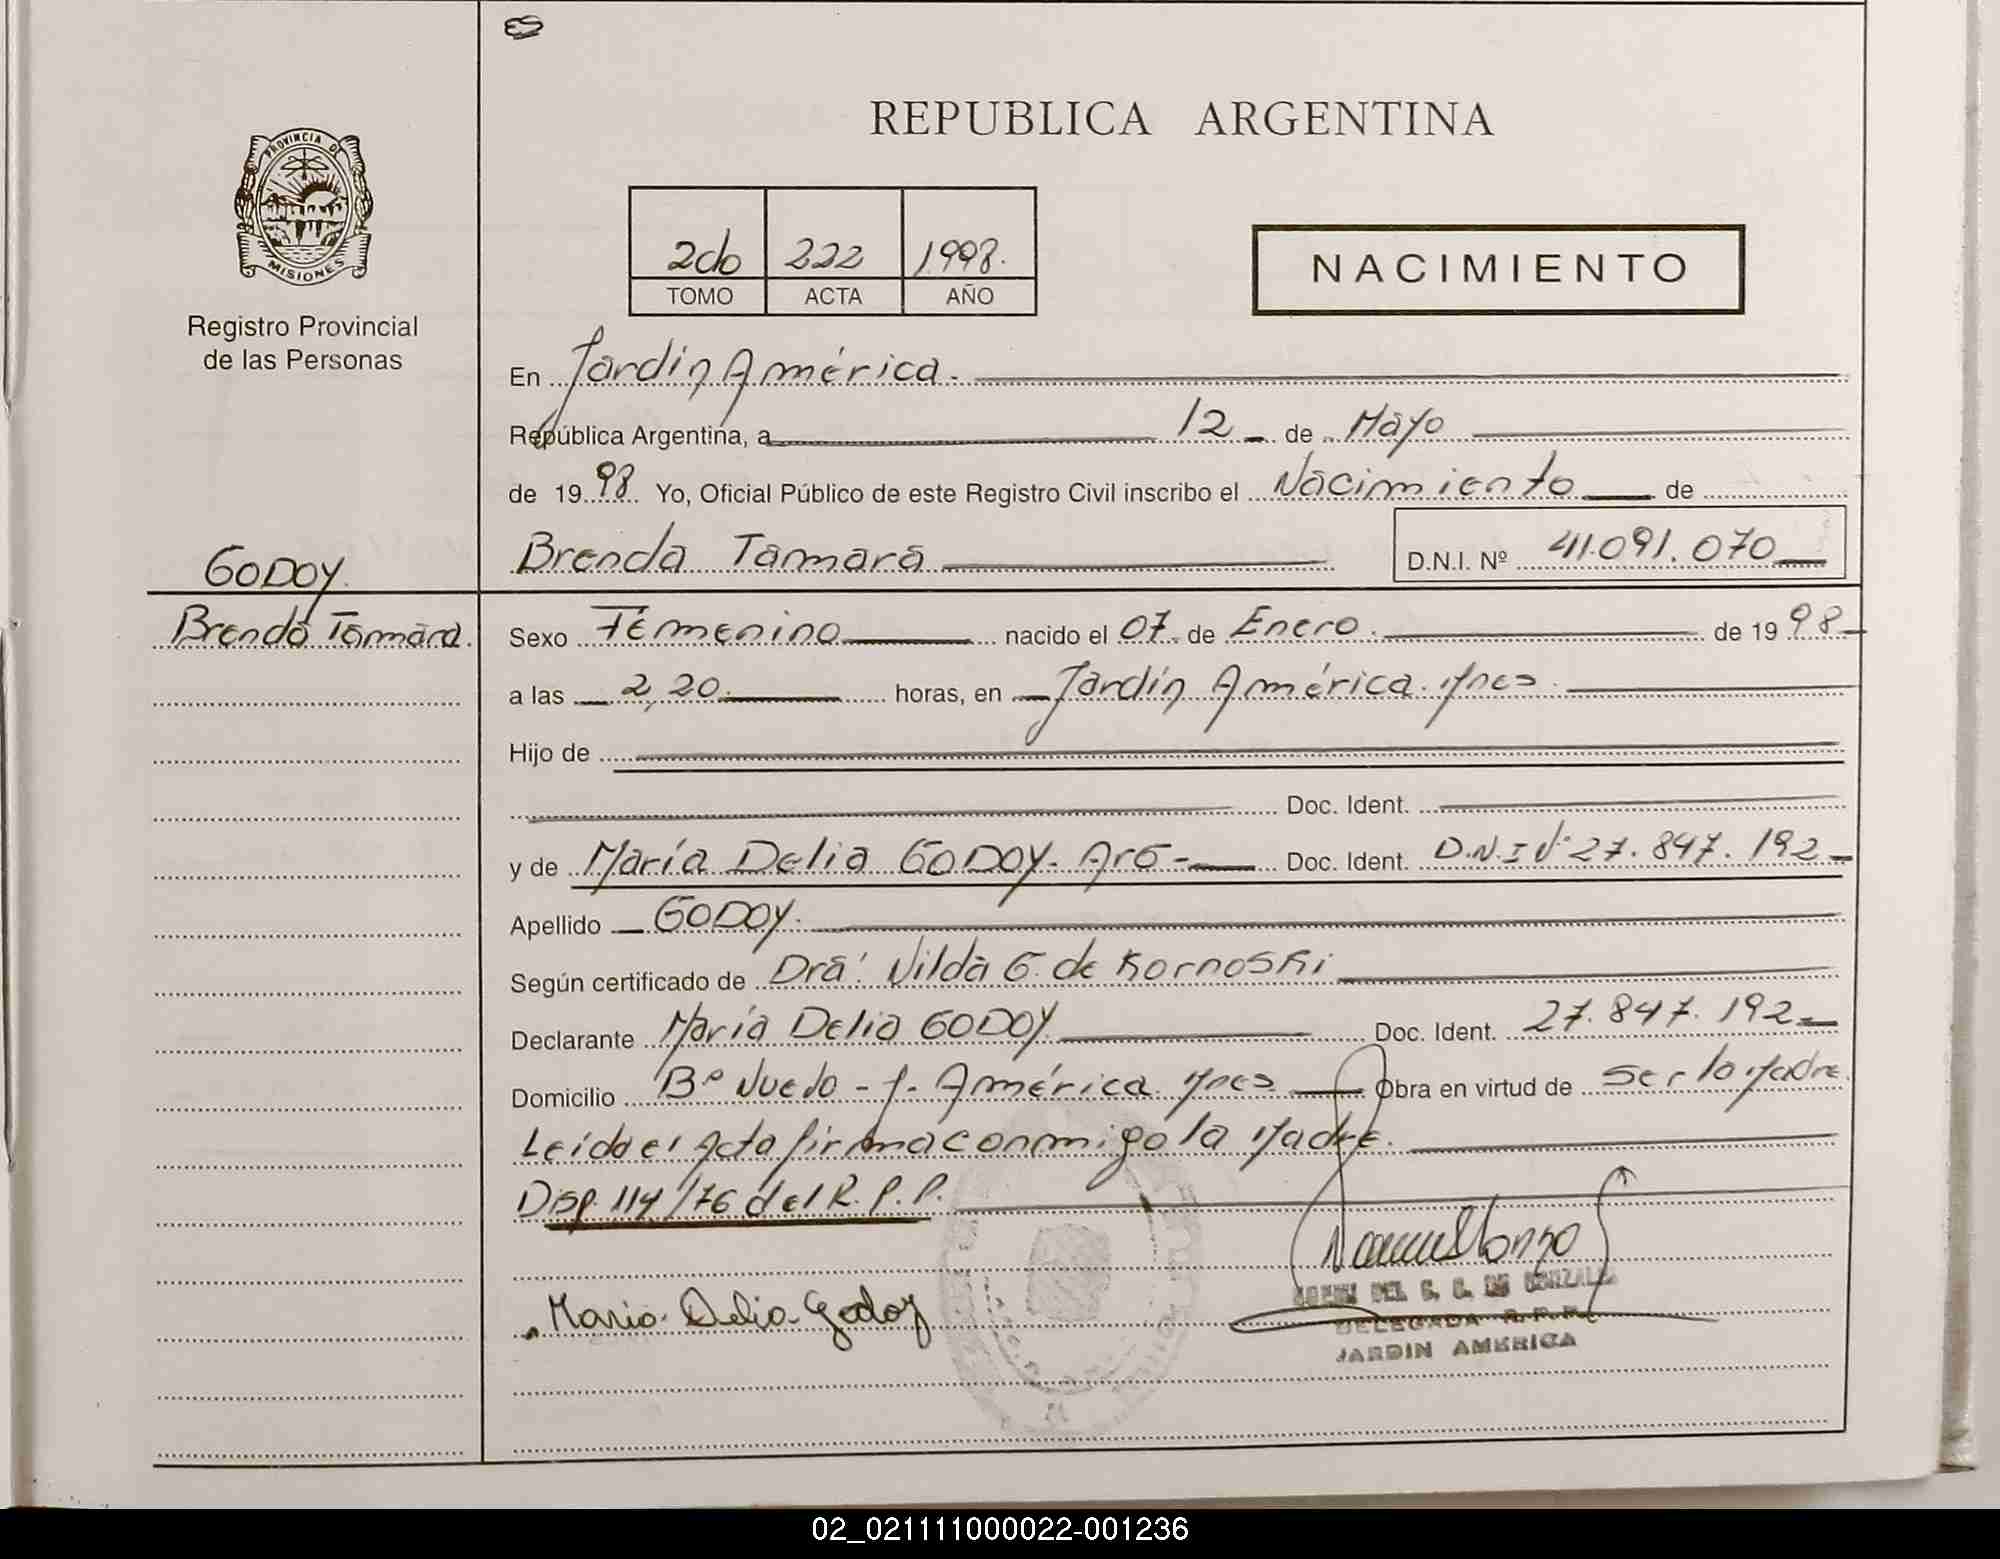 REPUBLICA ARGENTINA
PROVINCIA DE
MISIONES
Registro Provincial
de las Personas
2do 222 1998.
TOMO ACTA AÑO
NACIMIENTO
En Jardín América.
República Argentina, a 12 de Mayo
de 1998 Yo, Oficial Público de este Registro Civil inscribo el Nacimiento de
Brenda Tamara D.N.I. Nº 41.091.070
GODOY
Brenda Tamara.
Sexo Femenino nacido el 07 de Enero. de 1998
a las 2,20 horas, en Jardín América. Mnes.
Hijo de
Doc. Ident.
y de María Delia GODOY. Arg- Doc. Ident. D.N.I Nº 27.847.192
Apellido GODOY.
Según certificado de Dra. Nilda G. de Kornoski
Declarante María Delia GODOY Doc. Ident. 27.847.192
Domicilio Bº Nuevo - J. América. Mnes Obra en virtud de ser la Madre
Leída el Acta firma conmigo la Madre.
Disp. 114/76 del R.P.P.
Maria Delia Godoy
DEL C. G. DE GONZALEZ
DELEGADA R.P.P.
JARDIN AMERICA
02_021111000022-001236